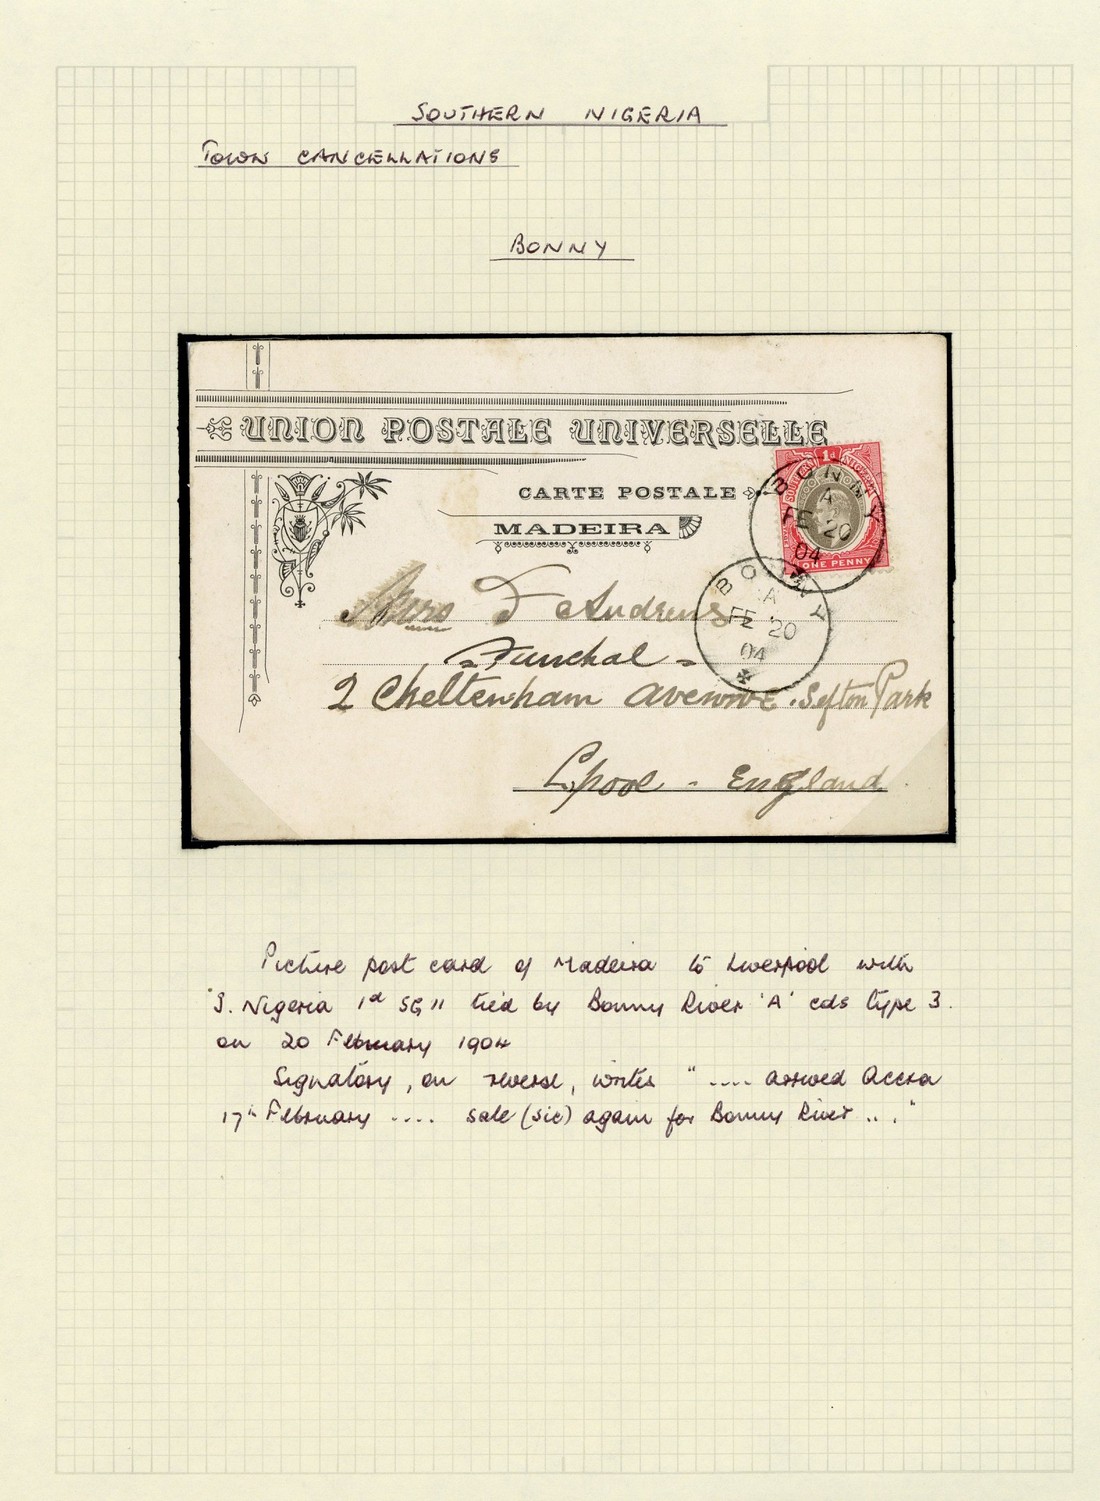 SOUTHERN NIGERIA
TOWN CANCELLATIONS
BONNY
UNION POSTALE UNIVERSELLE
CARTE POSTALE
MADEIRA
SOUTHERN 1d NIGERIA
ONE PENNY
BONNY
A
FE 20
04
BONNY
A
FE 20
04
F Andrews
Funchal
2 Cheltenham Avenue. Sefton Park
Lpool - England
Picture post card of Madeira to Liverpool with
S. Nigeria 1d SG 11 tied by Bonny River 'A' cds type 3.
on 20 February 1904
Signatory, on reverse, writes ".... arrived Accra
17th February .... sale (sic) again for Bonny River ..."